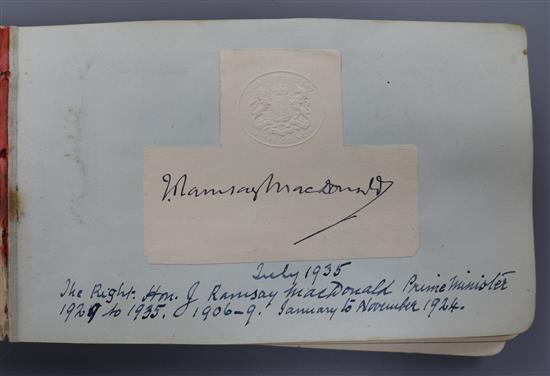 J. Ramsay MacDonald
July 1935
The Right. Hon. J Ramsay MacDonald Prime Minister
1929 to 1935. 1906-9. January to November 1924.